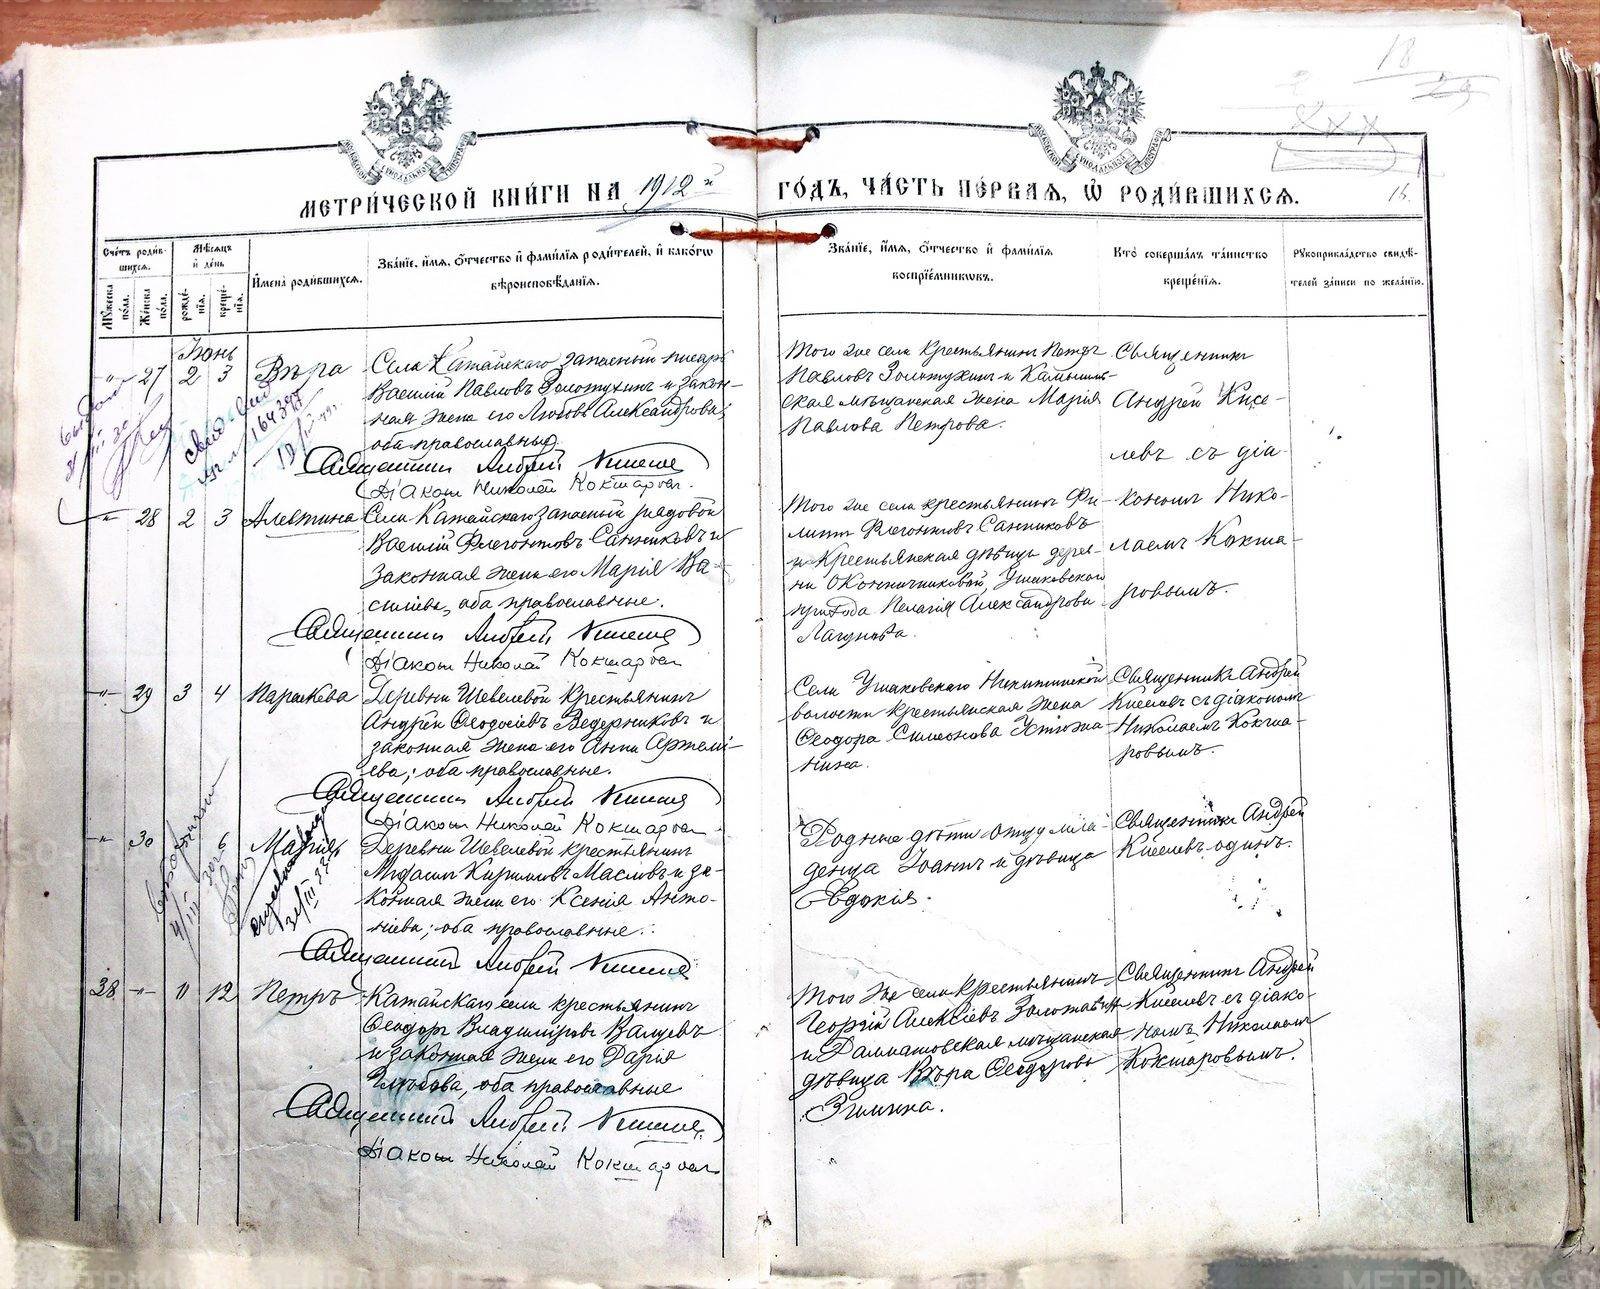 18
29
15.
МЕТРИ́ЧЕСКОЙ КНИ́ГИ НА 1912 й ГО́ДЪ, ЧА́СТЬ ПЕ́РВАЯ, Ѽ РОДИ́ВШИХСЯ.
Сче́тъ роди́вшихся.
Му́жеска по́ла.
Же́нска по́ла.
Мѣ́сяцъ и́ де́нь
рожде́нїя.
креще́нїя.
И҆мена̀ роди́вшихся.
Зва́нїе, и҆́мя, ѻ҆́тчество и҆ фами́лїя роди́телей, и҆ како́гѡ
вѣроисповѣ́данїя.
Зва́нїе, и҆́мя, ѻ҆́тчество и҆ фами́лїя
воспрїе́мниковъ.
Кто̀ соверша́лъ та́инство
креще́нїя.
Рукоприкла́дство свидѣ́-
телей за́писи по жела́нїю.
Іюнь
-"- 27 2 3 Вѣра
Села Катайскаго запасный писарь
Василій Павловъ Золотухинъ и закон-
ная жена его Любовь Александрова;
оба православные
Священникъ Андрей Киселевъ
Діаконъ Николай Кокшаровъ.
Того же села крестьянинъ Петръ
Павловъ Золотухинъ и Камышлов-
ская мѣщанская жена Марія
Павлова Петрова.
Священникъ
Андрей Кисе-
левъ съ діа-
кономъ Нико-
лаемъ Кокша-
ровымъ.
-"- 28 2 3 Алевтина
Села Катайскаго запасный рядовой
Василій Флегонтовъ Санниковъ и
законная жена его Марія Ва-
сильева, оба православные.
Священникъ Андрей Киселевъ
Діаконъ Николай Кокшаровъ
Того же села крестьянинъ Фи-
липпъ Флегонтовъ Санниковъ
и крестьянская дѣвица дерев-
ни Оконничниковой, Ушаковскаго
прихода Пелагія Александрова
Лагунова.
-"- 29 3 4 Параскева
Деревни Шевелевой крестьянинъ
Андрей Ѳеодосіевъ Ведерниковъ и
законная жена его Анна Артемі-
ева; оба православные.
Священникъ Андрей Киселевъ
Діаконъ Николай Кокшаровъ
Села Ушаковскаго Никитинской
волости крестьянская жена
Ѳеодора Симеонова Устюжа-
нина.
Священникъ Андрей
Киселевъ съ діакономъ
Николаемъ Кокша-
ровымъ.
-"- 30 6 Марія
Деревни Шевелевой крестьянинъ
Кириловъ Масловъ и за-
конная жена его Ксенія Анто-
ніева; оба православные.
Священникъ Андрей Киселевъ
Родные дѣти отцу мла-
денца Іоаннъ и дѣвица
Евдокія.
Священникъ Андрей
Киселевъ одинъ.
38 -"- 11 12 Петръ
Катайскаго села крестьянинъ
Ѳеодоръ Владиміровъ
и законная жена его Дарія
Глѣбова, оба православные
Священникъ Андрей Киселевъ
Діаконъ Николай Кокшаровъ
Того же села крестьянинъ
Георгій Алексіевъ
и Далматовская мѣщанская
дѣвица Вѣра Ѳеодорова
Зимина.
Священникъ Андрей
Киселевъ съ діако-
номъ Николаемъ
Кокшаровымъ.